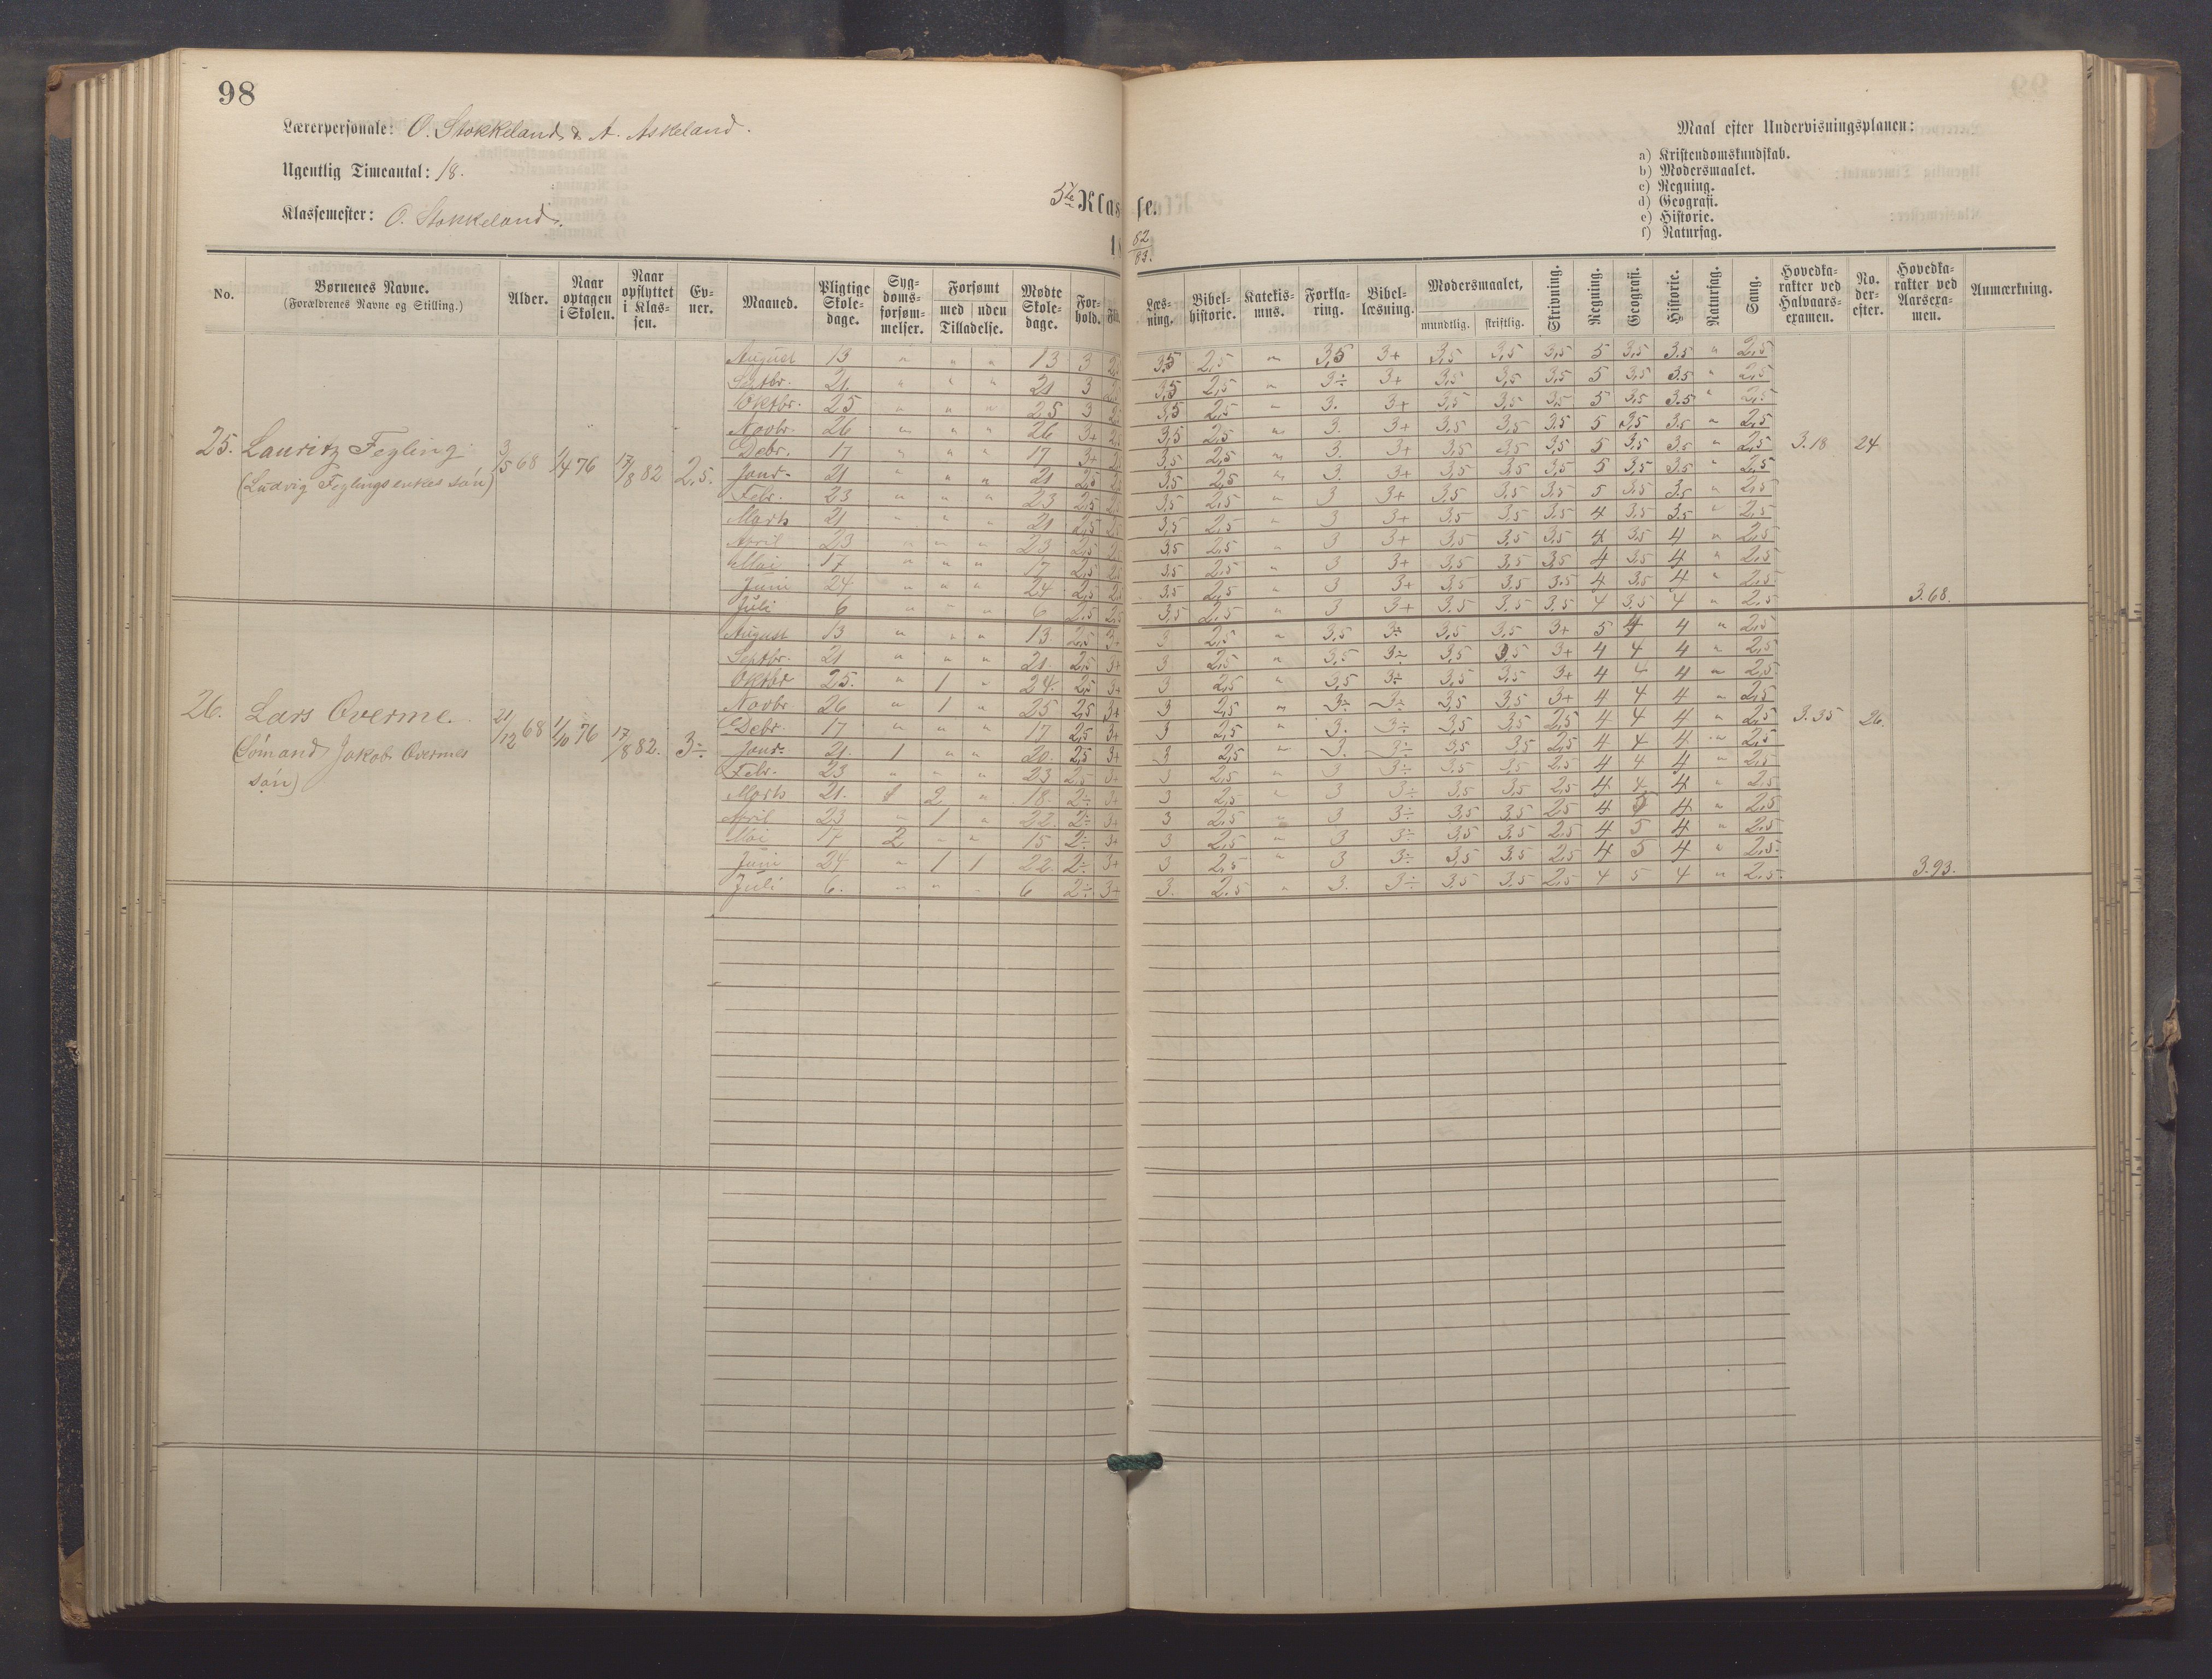 98
Lærerpersonale: O. Stokkeland & A. Askeland.
Ugentlig Timeantal: 18.
Klassemester: O. Stokkeland.
5te Klasse.
18 82/83.
Maal efter Undervisningsplanen:
a) Kristendomskundskab.
b) Modersmaalet.
c) Regning.
d) Geografi.
e) Historie.
f) Naturfag.
No. | Børnenes Navne. (Forældrenes Navne og Stilling.) | Alder. | Naar optagen i Skolen. | Naar opflyttet i Klassen. | Evner. | Maaned. | Pligtige Skoledage. | Sygdomsforsømmelser. | Forsømt med uden Tilladelse. | Mødte Skoledage. | Forhold. | Læsning. | Bibelhistorie. | Katekismus. | Forklaring. | Bibellæsning. | Modersmaalet, mundtlig. skriftlig. | Skrivning. | Regning. | Geografi. | Historie. | Naturfag. | Sang. | Hovedkarakter ved Halvaarsexamen. | No. derefter. | Hovedkarakter ved Aarsexamen. | Anmærkning.
25. Lauritz Fegling
(Ludvig Feglings enkes søn)
3/5 68 1/4 76 17/8 82 2,5.
August 13 " " " 13 3 2,5 3,5 2,5 " 3,5 3+ 3,5 3,5 3,5 5 3,5 3.5 " 2,5
Septbr. 21. " " " 21 3 2,5 3,5 2,5 " 3÷ 3+ 3,5 3,5 3,5 5 3,5 3.5 " 2,5
Oktbr. 25 " " " 25 3 2,5 3,5 2,5 " 3. 3+ 3,5 3,5 3,5 5 3,5 3.5 " 2,5
Novbr. 26 " " " 26 3+ 2,5 3,5 2,5 " 3. 3+ 3,5 3,5 3.5 5 3,5 3.5 " 2,5
Debr. 17 " " " 17 3+ 2,5 3,5 2,5 " 3. 3+ 3,5 3,5 3,5 5 3,5 3.5 " 2,5 3.18 24
Janr. 21 " " " 21 2,5 2,5 3,5 2,5 " 3. 3+ 3,5 3,5 3,5 5 3,5 3.5 " 2,5
Febr. 23 " " " 23 2,5 2,5 3,5 2,5 " 3 3+ 3,5 3,5 3,5 5 3,5 3.5 " 2,5
Marts 21 " " " 21 2,5 2,5 3,5 2,5 " 3 3+ 3,5 3,5 3.5 4 3,5 3.5 " 2,5
April 23 " " " 23 2,5 2,5 3,5 2,5 " 3 3+ 3,5 3,5 3,5 4 3,5 4 " 2,5
Mai 17 " " " 17 2,5 2,5 3,5 2,5 " 3 3+ 3,5 3,5 3,5 4 3,5 4 " 2,5
Juni 24 " " " 24 2,5 2,5 3,5 2,5 " 3 3+ 3,5 3,5 3.5 4 3,5 4 " 2,5
Juli 6 " " " 6 2,5 2,5 3,5 2,5 " 3 3+ 3,5 3.5 3.5 4 3,5 4 " 2,5 3.68.
26. Lars Overme.
(Sømand Jakob Overmes
søn)
21/12 68 1/10 76 17/8 82. 3÷
August 13 " " " 13. 2,5 3+ 3 2,5 " 3,5 3÷ 3,5 3,5 3+ 5 4 4 " 2,5
Septbr. 21 " " " 21. 2,5 3+ 3 2,5 " 3,5 3÷ 3,5 3,5 3+ 4 4 4 " 2,5
Oktbr 25. " 1 " 24. 2,5 3+ 3 2,5 " 3,5 3÷ 3,5 3,5 3+ 4 4 4 " 2,5
Novbr 26 " 1 " 25 2,5 3+ 3 2,5 " 3÷ 3÷ 3,5 3,5 3+ 4 4 4 " 2,5
Debr. 17 " " " 17 2,5 3+ 3 2,5 " 3. 3÷ 3,5 3,5 2,5 4 4 4 " 2,5 3.35 26.
Janr. 21. 1 " " 20. 2,5 3+ 3 2,5 " 3. 3÷ 3,5 3,5 2,5 4 4 4 " 2,5
Febr. 23 " " " 23 2,5 3+ 3 2,5 " 3 3÷ 3.5 3,5 2,5 4 4 4 " 2,5
Marts 21. 1 2 " 18. 2÷ 3+ 3 2,5 " 3 3÷ 3,5 3,5 2,5 4 4 4 " 2,5
April 23 " 1 " 22. 2÷ 3+ 3 2,5 " 3 3÷ 3,5 3.5 2,5 4 5 4 " 2,5
Mai 17 2 " " 15 2÷ 3+ 3 2,5 " 3 3÷ 3,5 3.5 2,5 4 5 4 " 2,5
Juni 24 " 1 1 22 2÷ 3+ 3 2,5 " 3 3÷ 3,5 3.5 2,5 4 5 4 " 2,5
Juli 6. " " " 6 2÷ 3+ 3. 2.5 " 3. 3÷ 3.5 3.5 2,5 4 5 4 " 2,5. 3.93.